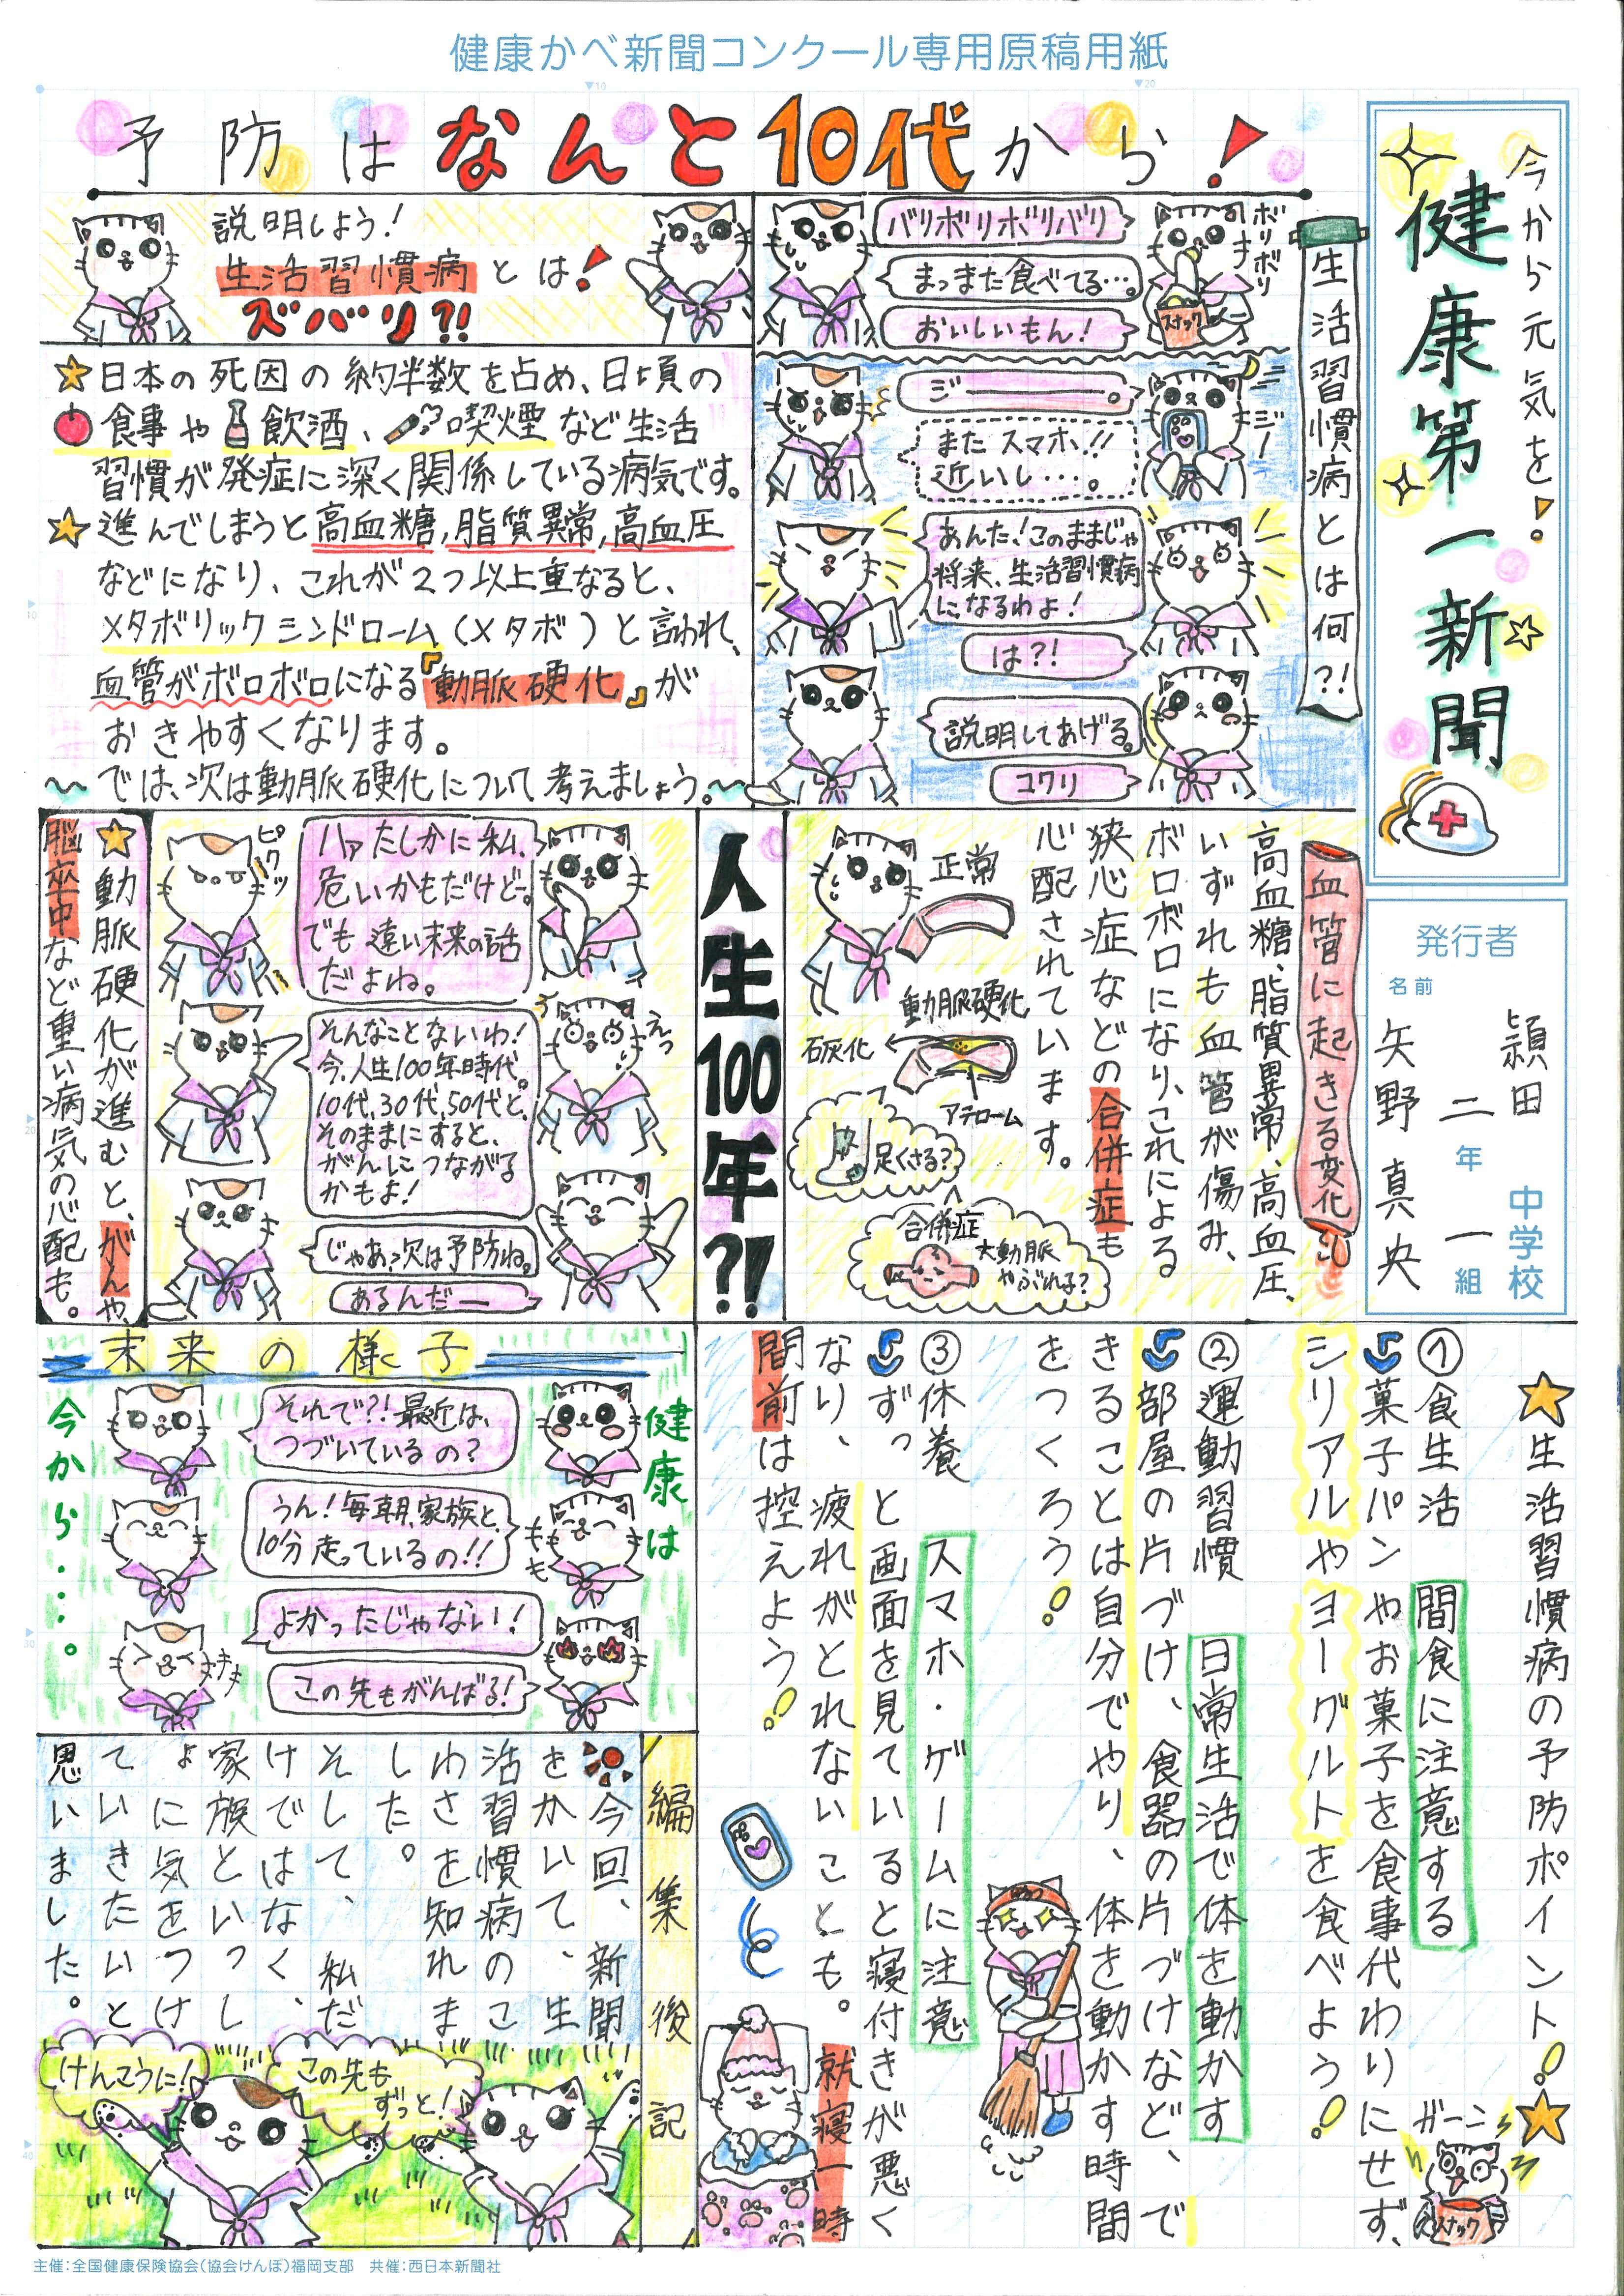 健康かべ新聞コンクール専用原稿用紙
今から元気を!
健康第一新聞
発行者
名前
潁田 中学校
二年 一組
矢野 真央
予防はなんと10代から!
生活習慣病とは何?!
ボリボリ
スナック
バリボリボリバリ
まっまた食べてる…。
おいしいもん!
ジー
ジー――――。
また スマホ!!
近いし…。
あんた!このままじゃ
将来、生活習慣病
になるわよ!
は?!
説明してあげる。
コワリ
説明しよう!
生活習慣病とは!
ズバリ?!
日本の死因の約半数を占め、日頃の
食事や飲酒、喫煙など生活
習慣が発症に深く関係している病気です。
進んでしまうと高血糖,脂質異常,高血圧
などになり、これが2つ以上重なると、
メタボリックシンドローム(メタボ)と言われ、
血管がボロボロになる『動脈硬化』が
おきやすくなります。
〜では、次は動脈硬化について考えましょう。〜
血管に起きる変化
高血糖、脂質異常、高血圧、
いずれも血管が傷み、
ボロボロになり、これによる
狭心症などの合併症も
心配されています。
正常
動脈硬化
石灰化
アテローム
足くさる?
合併症
大動脈
やぶれる?
人生100年?!
ハァ たしかに私、
危いかもだけど。
でも遠い未来の話
だよね。
ピクッ
そんなことないわ!
今、人生100年時代。
10代、30代、50代と、
そのままにすると、
がんにつながる
かもよ!
えっ
じゃあ、次は予防ね。
あるんだー
★動脈硬化が進むと、がんや、
脳卒中など重い病気の心配も。
★生活習慣病の予防ポイント!★
①食生活 間食に注意する
菓子パンやお菓子を食事代わりにせず、
シリアルやヨーグルトを食べよう!
ガーン
スナック
②運動習慣 日常生活で体を動かす
部屋の片づけ、食器の片づけなど、で
きることは自分でやり、体を動かす時間
をつくろう!
③休養 スマホ・ゲームに注意
ずっと画面を見ていると寝付きが悪く
なり、疲れがとれないことも。就寝一時
間前は控えよう!
未来の様子
健康は
今から‥‥。
それで?!最近は、
つづいているの?
うん!毎朝、家族と、
10分走っているの!!
もも
よかったじゃない!
この先もがんばる!
キキ
編集後記
今回、新聞
をかいて、生
活習慣病のこ
わさを知れま
した。
そして、私だ
けではなく、
家族といっし
ょに気をつけ
ていきたいと
思いました。
けんこうに!
この先も
ずっと!
主催:全国健康保険協会(協会けんぽ)福岡支部 共催:西日本新聞社